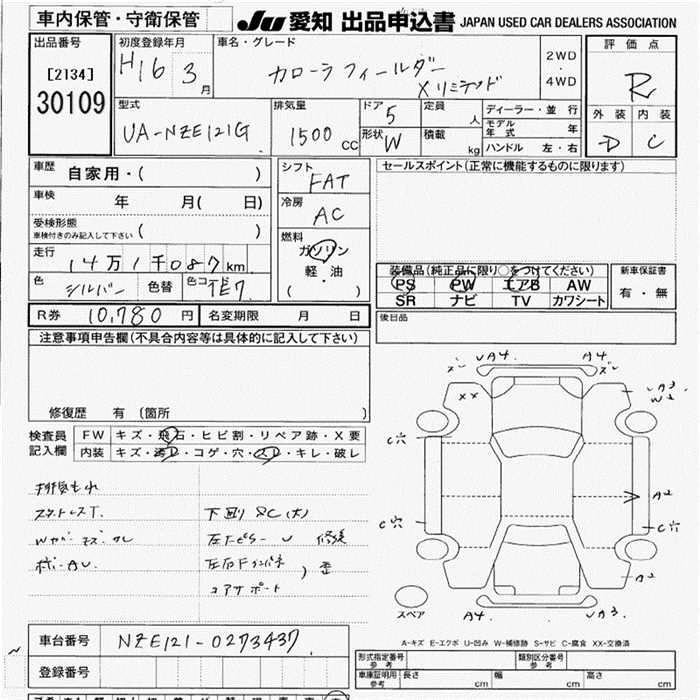 車内保管・守衛保管 JU 愛知 出品申込書 JAPAN USED CAR DEALERS ASSOCIATION
出品番号
[2134]
30109
初度登録年月
H16 3 月
車名・グレード
カローラフィールダー
Xリミテッド
2WD
・
4WD
評価点
R
外装 内装
D C
型式
UA-NZE121G
排気量
1500 CC
ドア 5
形状 W
定員 人
積載 kg
ディーラー・並行
モデル年式 年
ハンドル 左・右
車歴 自家用・( )
車検 年 月( 日)
受検形態
車検付きのみ記入して下さい ( )
走行 14万1千087km
色 シルバー 色替 色コ 1E7
シフト
FAT
冷房
AC
燃料
ガソリン
・
軽油
( )
セールスポイント(正常に機能するものに限ります)
装備品(純正品に限り○をつけてください)
PS PW エアB AW
SR ナビ TV カワシート
新車保証書
有・無
後日品
R券 10,780 円 名変期限 月 日
注意事項申告欄(不具合内容等は具体的に記入して下さい)
修復歴 有(箇所 )
検査員
記入欄
FW キズ・飛石・ヒビ割・リペア跡・X要
内装 キズ・汚レ・コゲ・穴・スレ・キレ・破レ
排気もれ
スタットレスT.
下回り SC(大)
左Fピラー U 修復
ボ-AU
コアサポート
歪
UA4. A4.
XX
UA3
W2
C穴
A2
C穴
C穴
A2
A4. UA3.
スペア
A-キズ E-エクボ U-凹み W-補修跡 S-サビ C-腐食 XX-交換済
車台番号 NZE121-0273437
登録番号
形式指定番号
参考
類別区分番号
参考
車庫証明用
参考
長さ cm 幅 cm 高さ cm